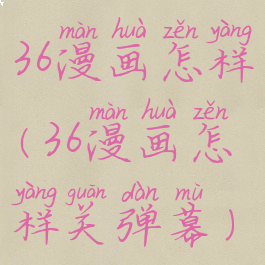 màn huà zěn yàng
36漫画怎样
màn huà zěn
(36漫画怎
yàng guān dàn mù
样关弹幕)